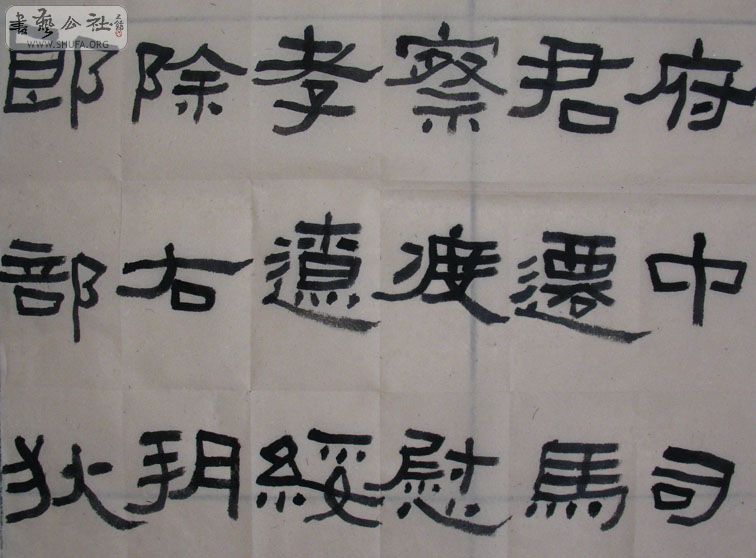 書藝公社
WWW.SHUFA.ORG
府君察孝除郎
中遷度遼右部
司馬慰綏朔狄